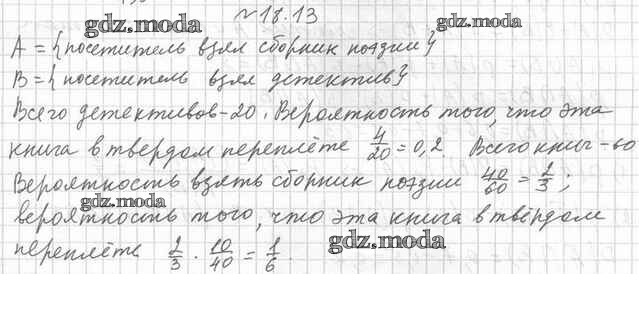 №18.13
gdz.moda gdz.moda
A = { посетитель взял сборник поэзии }
B = { посетитель взял детектив }
Всего детективов - 20. Вероятность того, что эта
книга в твердом переплёте 4/20 = 0,2. Всего книг - 60
Вероятность взять сборник поэзии 40/60 = 2/3;
gdz.moda
вероятность того, что эта книга в твёрдом
gdz.moda
переплёте 2/3 · 10/40 = 1/6.